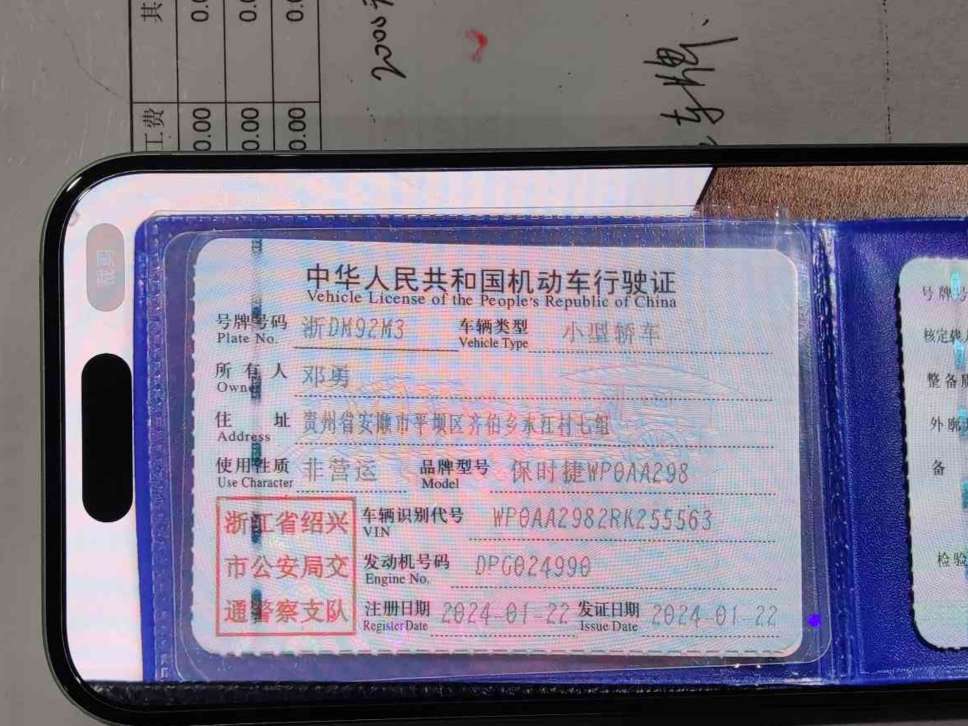 其
0.0
0.0
0.0
工费
0.00
0.00
0.00
2000元
车牌
裁剪
中华人民共和国机动车行驶证
Vehicle License of the People's Republic of China
号牌号码 浙DM92M3 车辆类型 小型轿车
Plate No. Vehicle Type
所有人 邓勇
Owner
住址 贵州省安顺市平坝区齐伯乡永江村七组
Address
使用性质 非营运 品牌型号 保时捷WP0AA298
Use Character Model
浙江省绍兴
市公安局交
通警察支队
车辆识别代号 WP0AA2982RK255563
VIN
发动机号码 DPG024990
Engine No.
注册日期 2024-01-22 发证日期 2024-01-22
Register Date Issue Date
号牌号
核定载人
整备质
外廓
备
检验